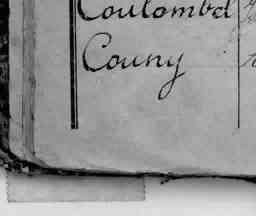 Coulombd
Couny